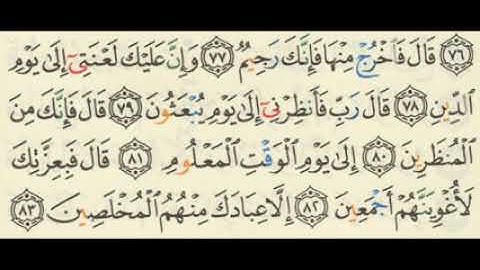 ٧٦ قَالَ فَٱخْرُجْ مِنْهَا فَإِنَّكَ رَجِيمٌ ٧٧ وَإِنَّ عَلَيْكَ لَعْنَتِىٓ إِلَىٰ يَوْمِ
ٱلدِّينِ ٧٨ قَالَ رَبِّ فَأَنظِرْنِىٓ إِلَىٰ يَوْمِ يُبْعَثُونَ ٧٩ قَالَ فَإِنَّكَ مِنَ
ٱلْمُنظَرِينَ ٨٠ إِلَىٰ يَوْمِ ٱلْوَقْتِ ٱلْمَعْلُومِ ٨١ قَالَ فَبِعِزَّتِكَ
لَأُغْوِيَنَّهُمْ أَجْمَعِينَ ٨٢ إِلَّا عِبَادَكَ مِنْهُمُ ٱلْمُخْلَصِينَ ٨٣